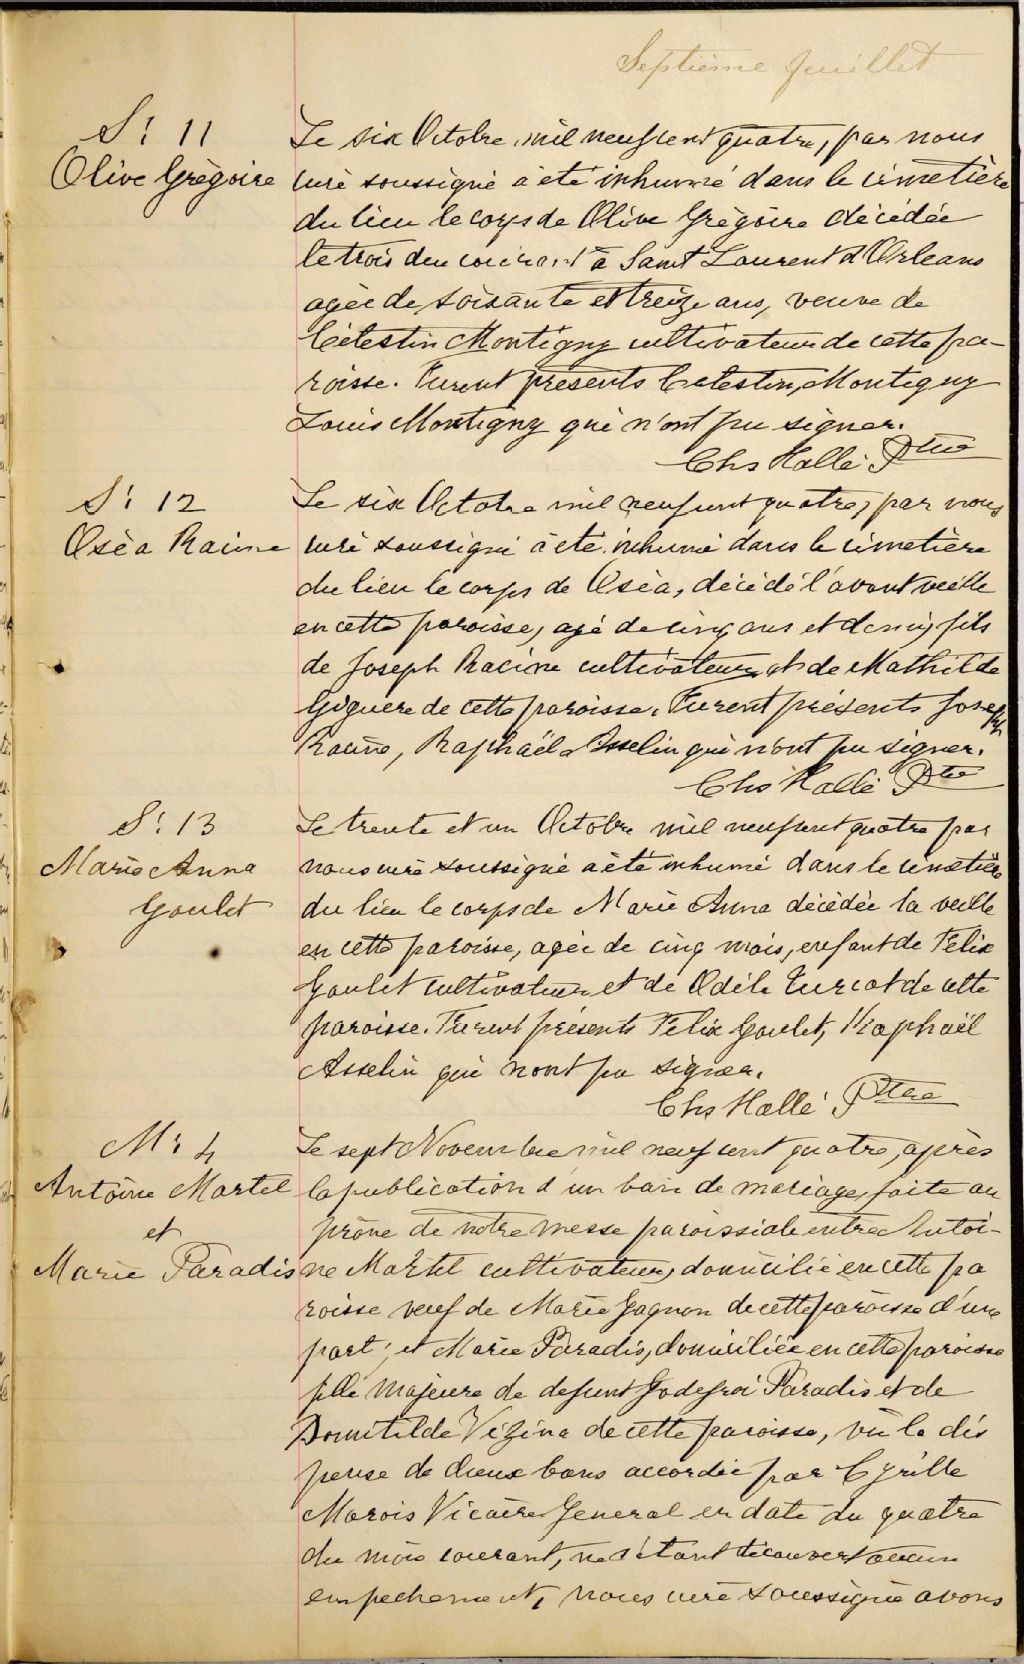 Septième feuillet
S: 11
Olive Grégoire
Le six Octobre mil neuf cent quatre, par nous
curé soussigné a été inhumé dans le cimetière
du lieu le corps de Olive Grégoire décédée
le trois du courant à Saint Laurent d'Orleans
agée de soixante et treize ans, veuve de
Célestin Montigny cultivateur de cette pa-
roisse. Furent présents Celestin Montigny
Louis Montigny qui n'ont pu signer.
Chs Hallé Ptre
S: 12
Oséa Racine
Le six Octobre mil neuf cent quatre, par nous
curé soussigné a été inhumé dans le cimetière
du lieu le corps de Oséa, décédé l'avant veille
en cette paroisse, agé de cinq ans et demi, fils
de Joseph Racine cultivateur et de Mathilde
Giguere de cette paroisse. Furent présents Joseph
Racine, Raphaël Asselin qui n'ont pu signer.
Chs Hallé Ptre
S: 13
Marie Anna
Goulet
Le trente et un Octobre mil neuf cent quatre par
nous curé soussigné a été inhumé dans le cimetière
du lieu le corps de Marie Anna décédée la veille
en cette paroisse, agée de cinq mois, enfant de Félix
Goulet cultivateur et de Odile Turcot de cette
paroisse. Furent présents Félix Goulet, Raphaël
Asselin qui n'ont pu signer.
Chs Hallé Ptre
M: 4
Antoine Martel
et
Marie Paradis
Le sept Novembre mil neuf cent quatre, après
la publication d'un ban de mariage, faite au
prône de notre messe paroissiale entre Antoi-
ne Martel cultivateur, domicilié en cette pa
roisse veuf de Marie Gagnon de cette paroisse d'une
part; et Marie Paradis, domiciliée en cette paroisse
fille majeure de defunt Godefroi Paradis et de
Domitilde Vézina de cette paroisse, vu la dis
pense de deux bans accordée par Cyrille
Marois Vicaire General en date du quatre
du mois courant, ne s'étant découvert aucun
empechement, nous curé soussigné avons